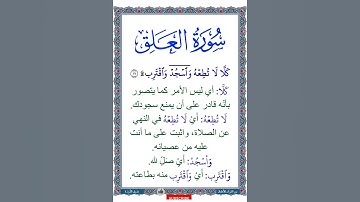 سُورَةُ العَلَقِ
كَلَّا لَا تُطِعْهُ وَٱسْجُدْ وَٱقْتَرِب ۩
كَلَّا: أي ليس الأمر كما يتصور
بأنه قادر على أن يمنع سجودك.
لَا تُطِعْهُ: أيْ لَا تُطِعْهُ في النهي
عن الصلاة، واثبت على ما أنت
عليه من عصيانه.
وَٱسْجُدْ: أيْ صَلِّ لله.
وَٱقْتَرِب: أيْ وَٱقْتَرِب منه بطاعته.
SUBSCRIBE